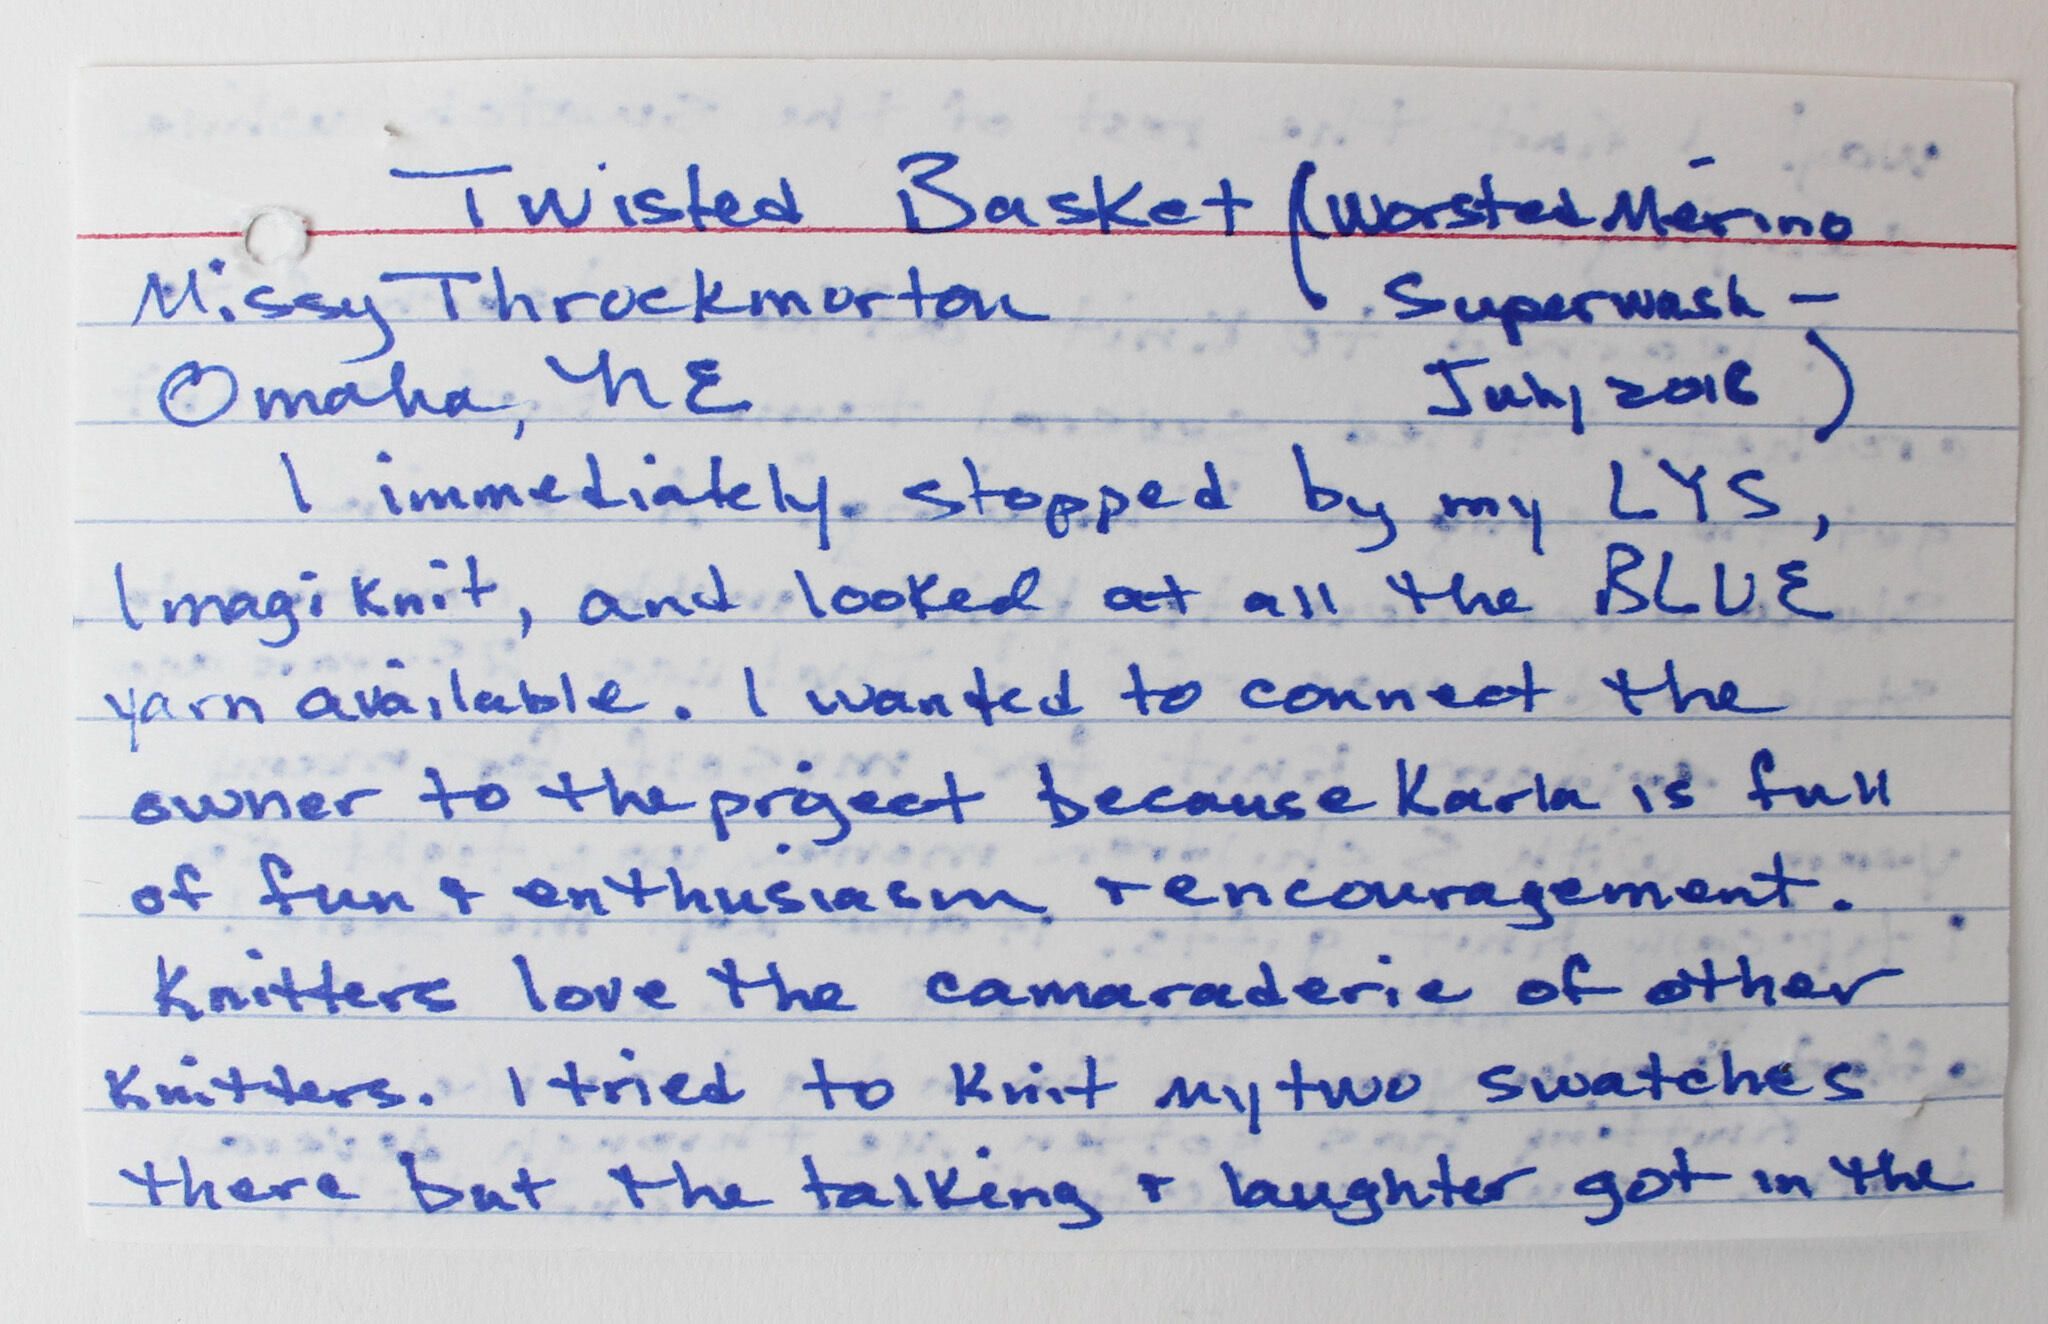 Twisted Basket (Worsted Merino
Missy Throckmorton Superwash -
Omaha, NE July 2018)
I immediately stopped by my LYS,
Imagiknit, and looked at all the BLUE
yarn available. I wanted to connect the
owner to the project because Karla is full
of fun + enthusiasm + encouragement.
Knitters love the camaraderie of other
knitters. I tried to knit my two swatches
there but the talking + laughter got in the